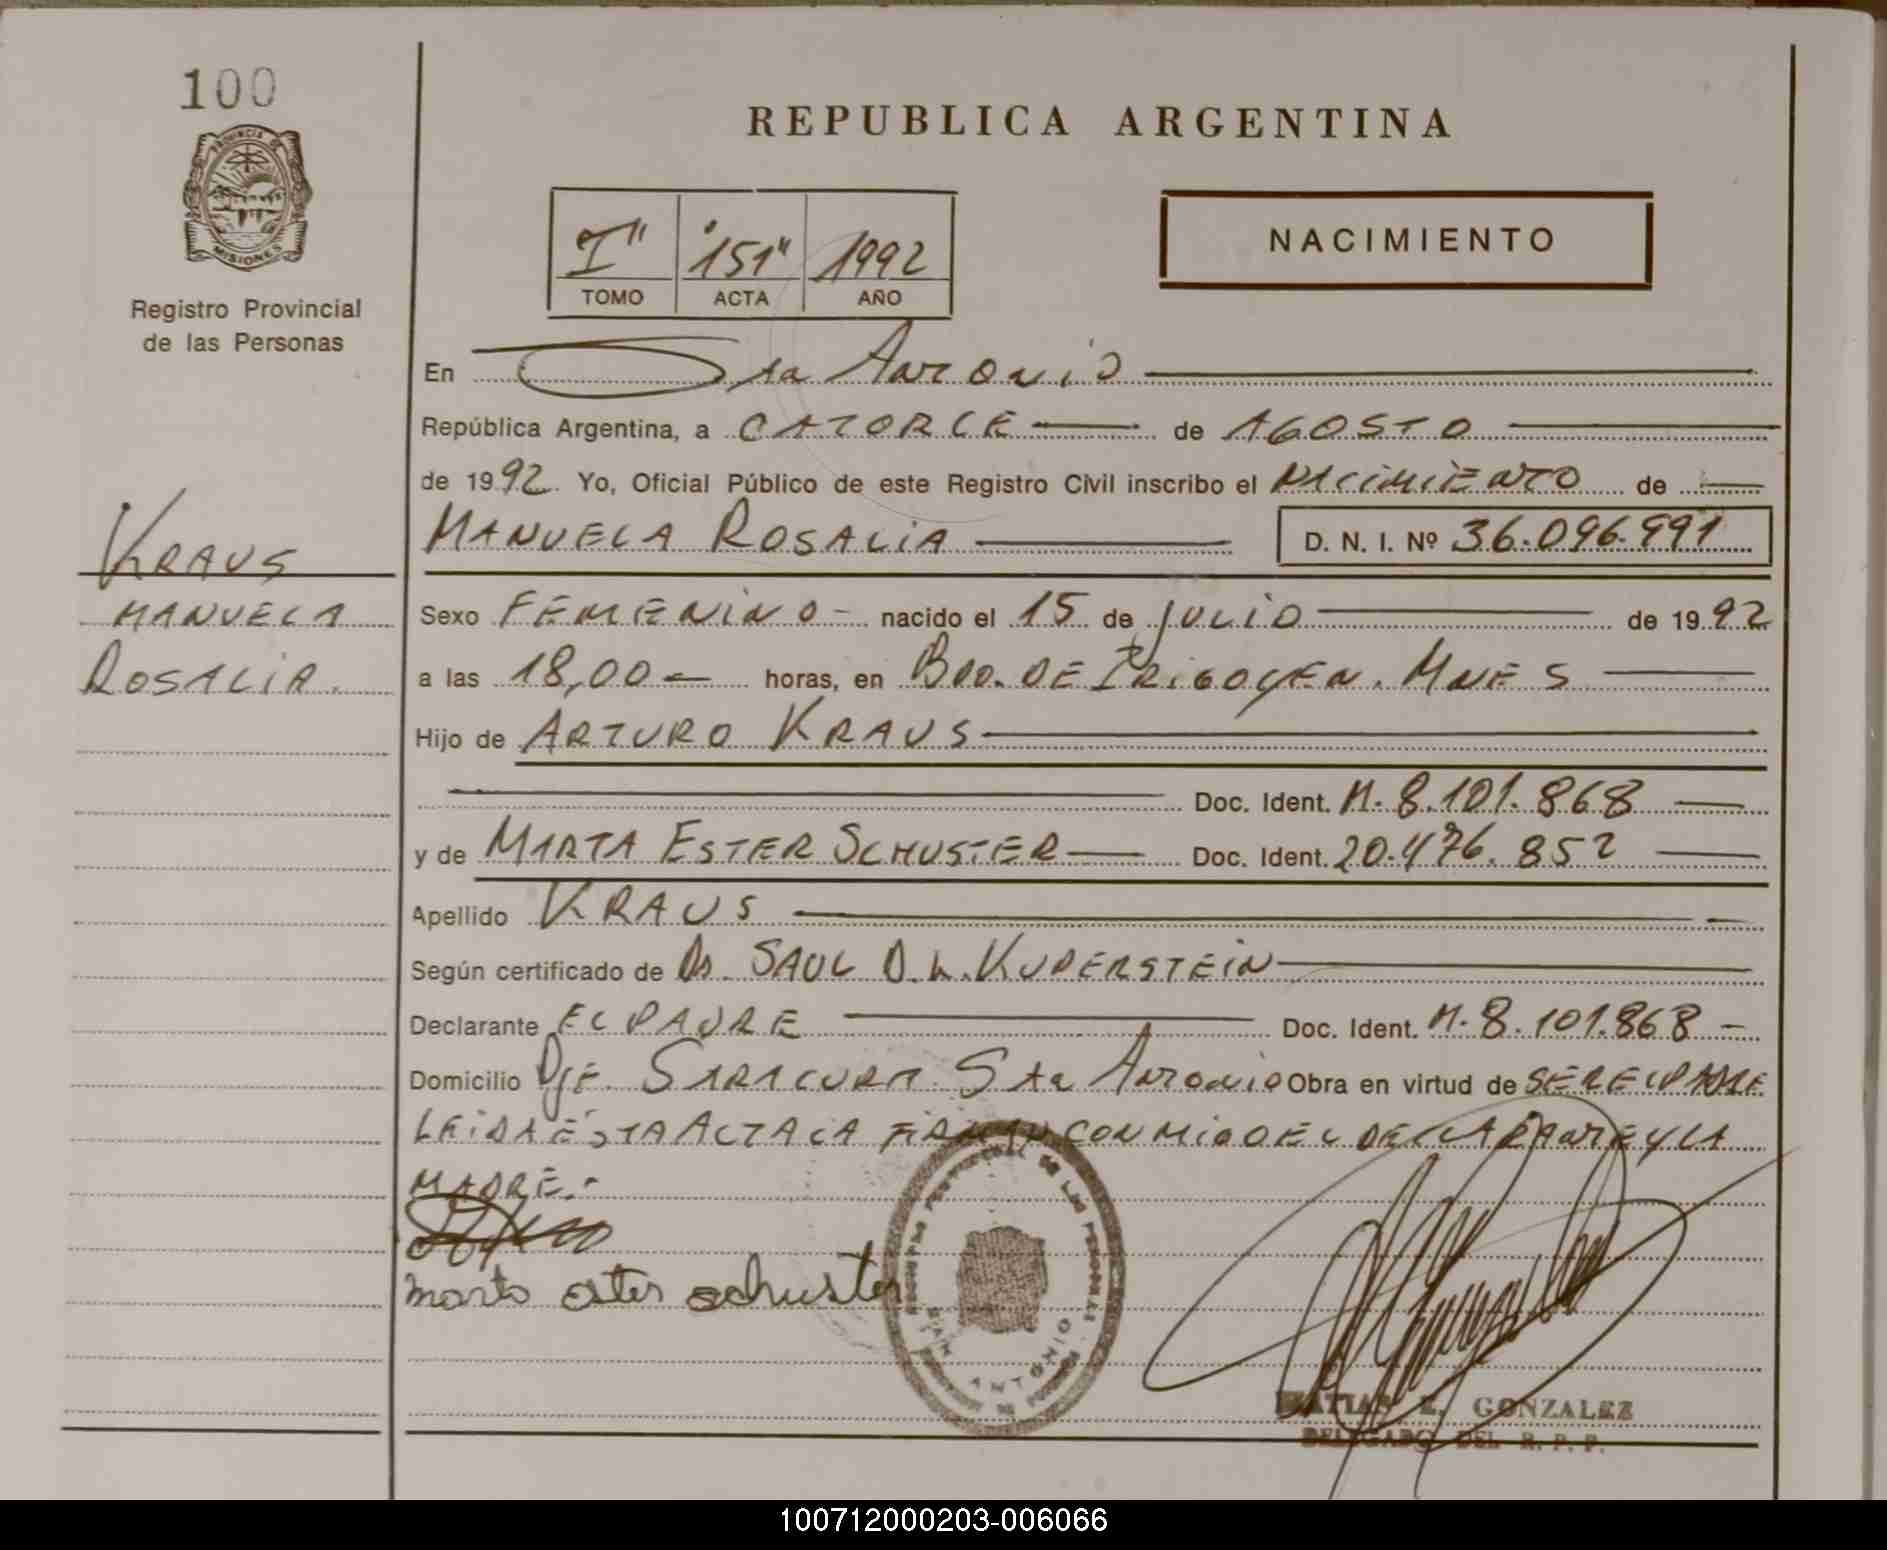 100
PROVINCIA DE
MISIONES
Registro Provincial
de las Personas
REPUBLICA ARGENTINA
I" "151" 1992
TOMO ACTA AÑO
NACIMIENTO
En Sta Antonio
República Argentina, a CATORCE de AGOSTO
de 1992. Yo, Oficial Público de este Registro Civil inscribo el NACIMIENTO de
MANUELA ROSALIA D. N. I. Nº 36.096.991
KRAUS
MANUELA
ROSALIA.
Sexo FEMENINO - nacido el 15 de JULIO de 1992
a las 18,00 horas, en BDO. DE IRIGOYEN. MNES
Hijo de ARTURO KRAUS
Doc. Ident. M. 8.101.868
y de MARTA ESTER SCHUSTER Doc. Ident. 20.476.852
Apellido KRAUS
Según certificado de Dr. SAUL D. L. KUPERSTEIN
Declarante EL PADRE Doc. Ident. M. 8.101.868 -
Domicilio Pje. SARACURA Sta Antonio Obra en virtud de SER EL PADRE
LEIDA ESTA ACTA LA FIRMAN CONMIGO EL DECLARANTE Y LA
MADRE.-
marta ester schuster
ANTONIO
MATIAS E. GONZALEZ
DELEGADO DEL R. P. P.
100712000203-006066